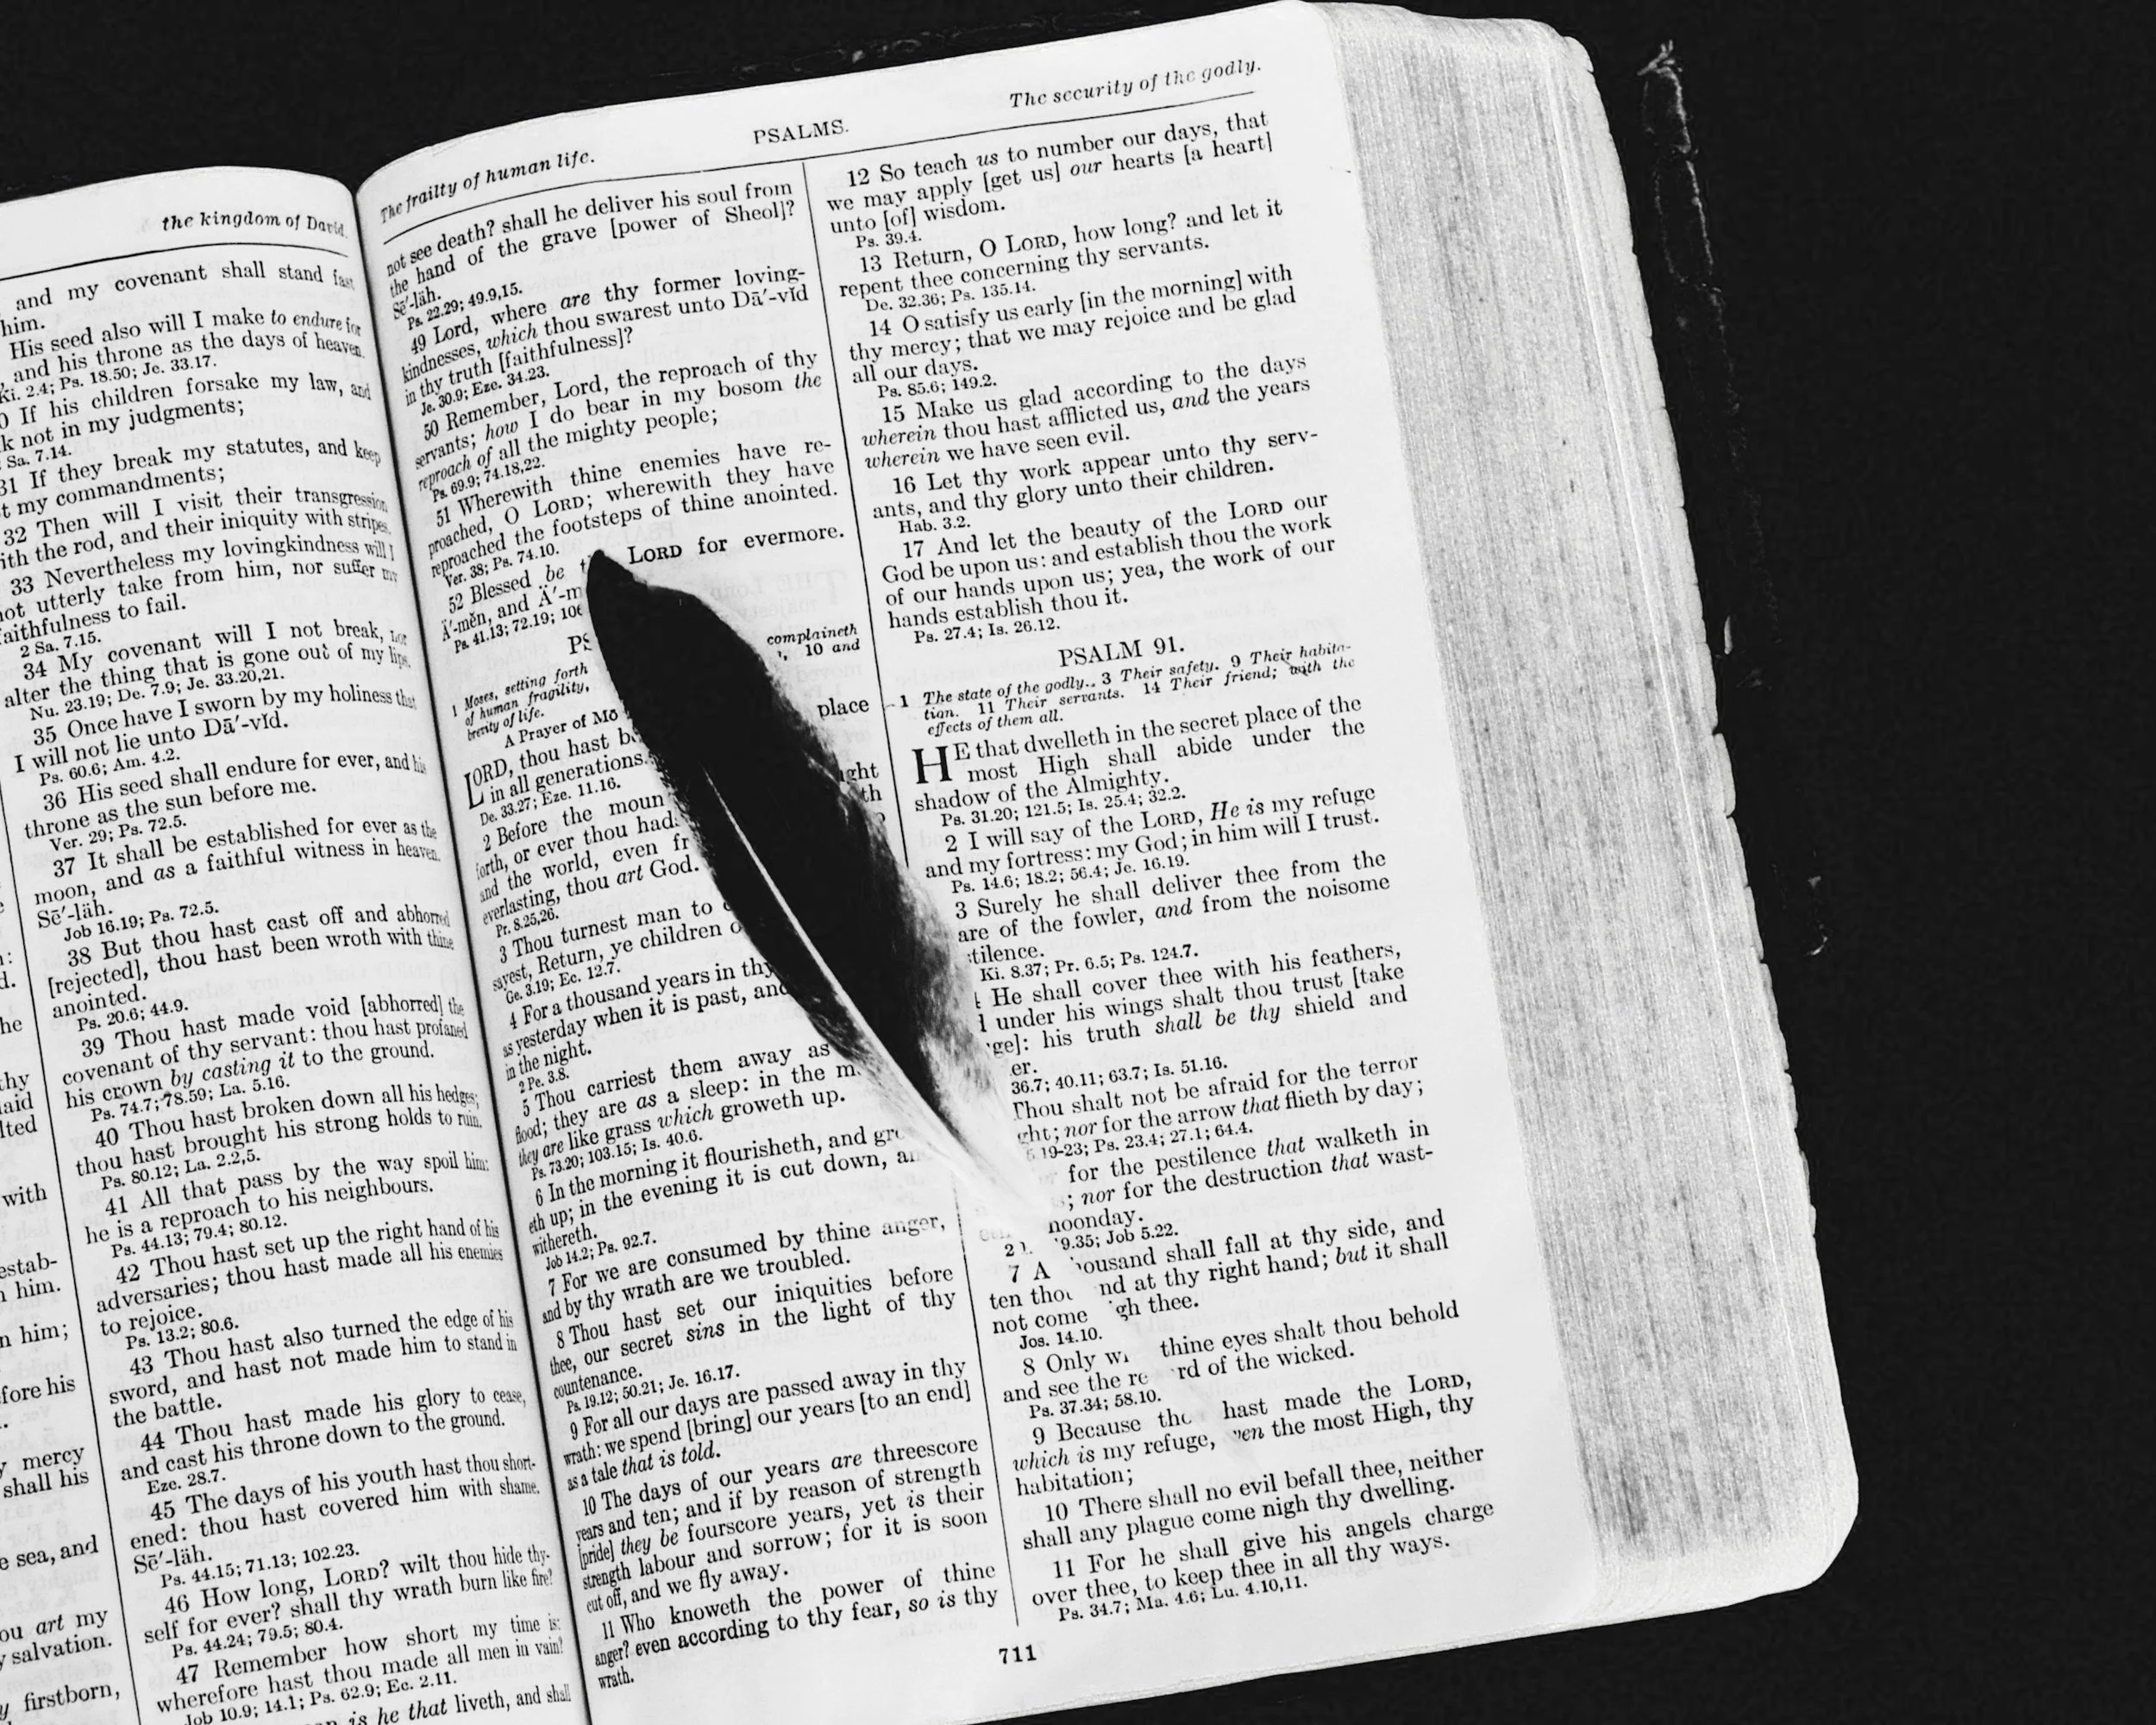 the kingdom of David.
and my covenant shall stand fast
him.
His seed also will I make to endure for
and his throne as the days of heaven.
Ki. 2.4; Ps. 18.50; Je. 33.17.
If his children forsake my law, and
not in my judgments;
Sa. 7.14.
31 If they break my statutes, and keep
my commandments;
32 Then will I visit their transgression
with the rod, and their iniquity with stripes.
33 Nevertheless my lovingkindness will I
not utterly take from him, nor suffer my
faithfulness to fail.
2 Sa. 7.15.
34 My covenant will I not break, nor
alter the thing that is gone out of my lips.
Nu. 23.19; De. 7.9; Je. 33.20,21.
35 Once have I sworn by my holiness that
I will not lie unto Dā′-vĭd.
Ps. 60.6; Am. 4.2.
36 His seed shall endure for ever, and his
throne as the sun before me.
Ver. 29; Ps. 72.5.
37 It shall be established for ever as the
moon, and as a faithful witness in heaven.
Sē′-läh.
Job 16.19; Ps. 72.5.
38 But thou hast cast off and abhorred
[rejected], thou hast been wroth with thine
anointed.
Ps. 20.6; 44.9.
39 Thou hast made void [abhorred] the
covenant of thy servant: thou hast profaned
his crown by casting it to the ground.
Ps. 74.7; 78.59; La. 5.16.
40 Thou hast broken down all his hedges;
thou hast brought his strong holds to ruin.
Ps. 80.12; La. 2.2,5.
41 All that pass by the way spoil him:
he is a reproach to his neighbours.
Ps. 44.13; 79.4; 80.12.
42 Thou hast set up the right hand of his
adversaries; thou hast made all his enemies
to rejoice.
Ps. 13.2; 80.6.
43 Thou hast also turned the edge of his
sword, and hast not made him to stand in
the battle.
44 Thou hast made his glory to cease,
and cast his throne down to the ground.
Eze. 28.7.
45 The days of his youth hast thou short-
ened: thou hast covered him with shame.
Sē′-läh.
Ps. 44.15; 71.13; 102.23.
46 How long, LORD? wilt thou hide thy-
self for ever? shall thy wrath burn like fire?
Ps. 44.24; 79.5; 80.4.
47 Remember how short my time is:
wherefore hast thou made all men in vain?
Job 10.9; 14.1; Ps. 62.9; Ec. 2.11.
is he that liveth, and shall
with
him.
him;
his
mercy
shall his
sea, and
art my
salvation.
firstborn,
The frailty of human life.
PSALMS.
The security of the godly.
not see death? shall he deliver his soul from
the hand of the grave [power of Sheol]?
Sē′-läh.
Ps. 22.29; 49.9,15.
49 Lord, where are thy former loving-
kindnesses, which thou swarest unto Dā′-vĭd
in thy truth [faithfulness]?
Je. 30.9; Eze. 34.23.
50 Remember, Lord, the reproach of thy
servants; how I do bear in my bosom the
reproach of all the mighty people;
Ps. 69.9; 74.18,22.
51 Wherewith thine enemies have re-
proached, O LORD; wherewith they have
reproached the footsteps of thine anointed.
Ver. 38; Ps. 74.10.
52 Blessed be LORD for evermore.
Ä′-mĕn, and
Ps. 41.13; 72.19;
complaineth
10 and
1 Moses, setting forth
of human fragility,
brevity of life.
A Prayer of
LORD, thou hast place
in all generations.
De. 33.27; Eze. 11.16.
2 Before the
forth, or ever thou
and the world, even
everlasting, thou art God.
Pr. 8.25,26.
3 Thou turnest man to
sayest, Return, ye children
Ge. 3.19; Ec. 12.7.
4 For a thousand years in thy
as yesterday when it is past, and
in the night.
2 Pe. 3.8.
5 Thou carriest them away as
flood; they are as a sleep: in the
they are like grass which groweth up.
Ps. 73.20; 103.15; Is. 40.6.
6 In the morning it flourisheth, and
eth up; in the evening it is cut down,
withereth.
Job 14.2; Ps. 92.7.
7 For we are consumed by thine anger,
and by thy wrath are we troubled.
8 Thou hast set our iniquities before
thee, our secret sins in the light of thy
countenance.
Ps. 19.12; 50.21; Je. 16.17.
9 For all our days are passed away in thy
wrath: we spend [bring] our years [to an end]
as a tale that is told.
10 The days of our years are threescore
years and ten; and if by reason of strength
[pride] they be fourscore years, yet is their
strength labour and sorrow; for it is soon
cut off, and we fly away.
11 Who knoweth the power of thine
anger? even according to thy fear, so is thy
wrath.
12 So teach us to number our days, that
we may apply [get us] our hearts [a heart]
unto [of] wisdom.
Ps. 39.4.
13 Return, O LORD, how long? and let it
repent thee concerning thy servants.
De. 32.36; Ps. 135.14.
14 O satisfy us early [in the morning] with
thy mercy; that we may rejoice and be glad
all our days.
Ps. 85.6; 149.2.
15 Make us glad according to the days
wherein thou hast afflicted us, and the years
wherein we have seen evil.
16 Let thy work appear unto thy serv-
ants, and thy glory unto their children.
Hab. 3.2.
17 And let the beauty of the LORD our
God be upon us: and establish thou the work
of our hands upon us; yea, the work of our
hands establish thou it.
Ps. 27.4; Is. 26.12.
PSALM 91.
1 The state of the godly. 3 Their safety. 9 Their habita-
tion. 11 Their servants. 14 Their friend; with the
effects of them all.
HE that dwelleth in the secret place of the
most High shall abide under the
shadow of the Almighty.
Ps. 31.20; 121.5; Is. 25.4; 32.2.
2 I will say of the LORD, He is my refuge
and my fortress: my God; in him will I trust.
Ps. 14.6; 18.2; 56.4; Je. 16.19.
3 Surely he shall deliver thee from the
of the fowler, and from the noisome
Ki. 8.37; Pr. 6.5; Ps. 124.7.
He shall cover thee with his feathers,
under his wings shalt thou trust [take
his truth shall be thy shield and
36.7; 40.11; 63.7; Is. 51.16.
Thou shalt not be afraid for the terror
nor for the arrow that flieth by day;
19-23; Ps. 23.4; 27.1; 64.4.
for the pestilence that walketh in
nor for the destruction that wast-
noonday.
Job 5.22.
7 A shall fall at thy side, and
ten at thy right hand; but it shall
not come thee.
Jos. 14.10.
8 Only thine eyes shalt thou behold
and see the of the wicked.
Ps. 37.34; 58.10.
9 Because hast made the LORD,
which is my refuge, the most High, thy
habitation;
10 There shall no evil befall thee, neither
shall any plague come nigh thy dwelling.
11 For he shall give his angels charge
over thee, to keep thee in all thy ways.
Ps. 34.7; Ma. 4.6; Lu. 4.10,11.
711